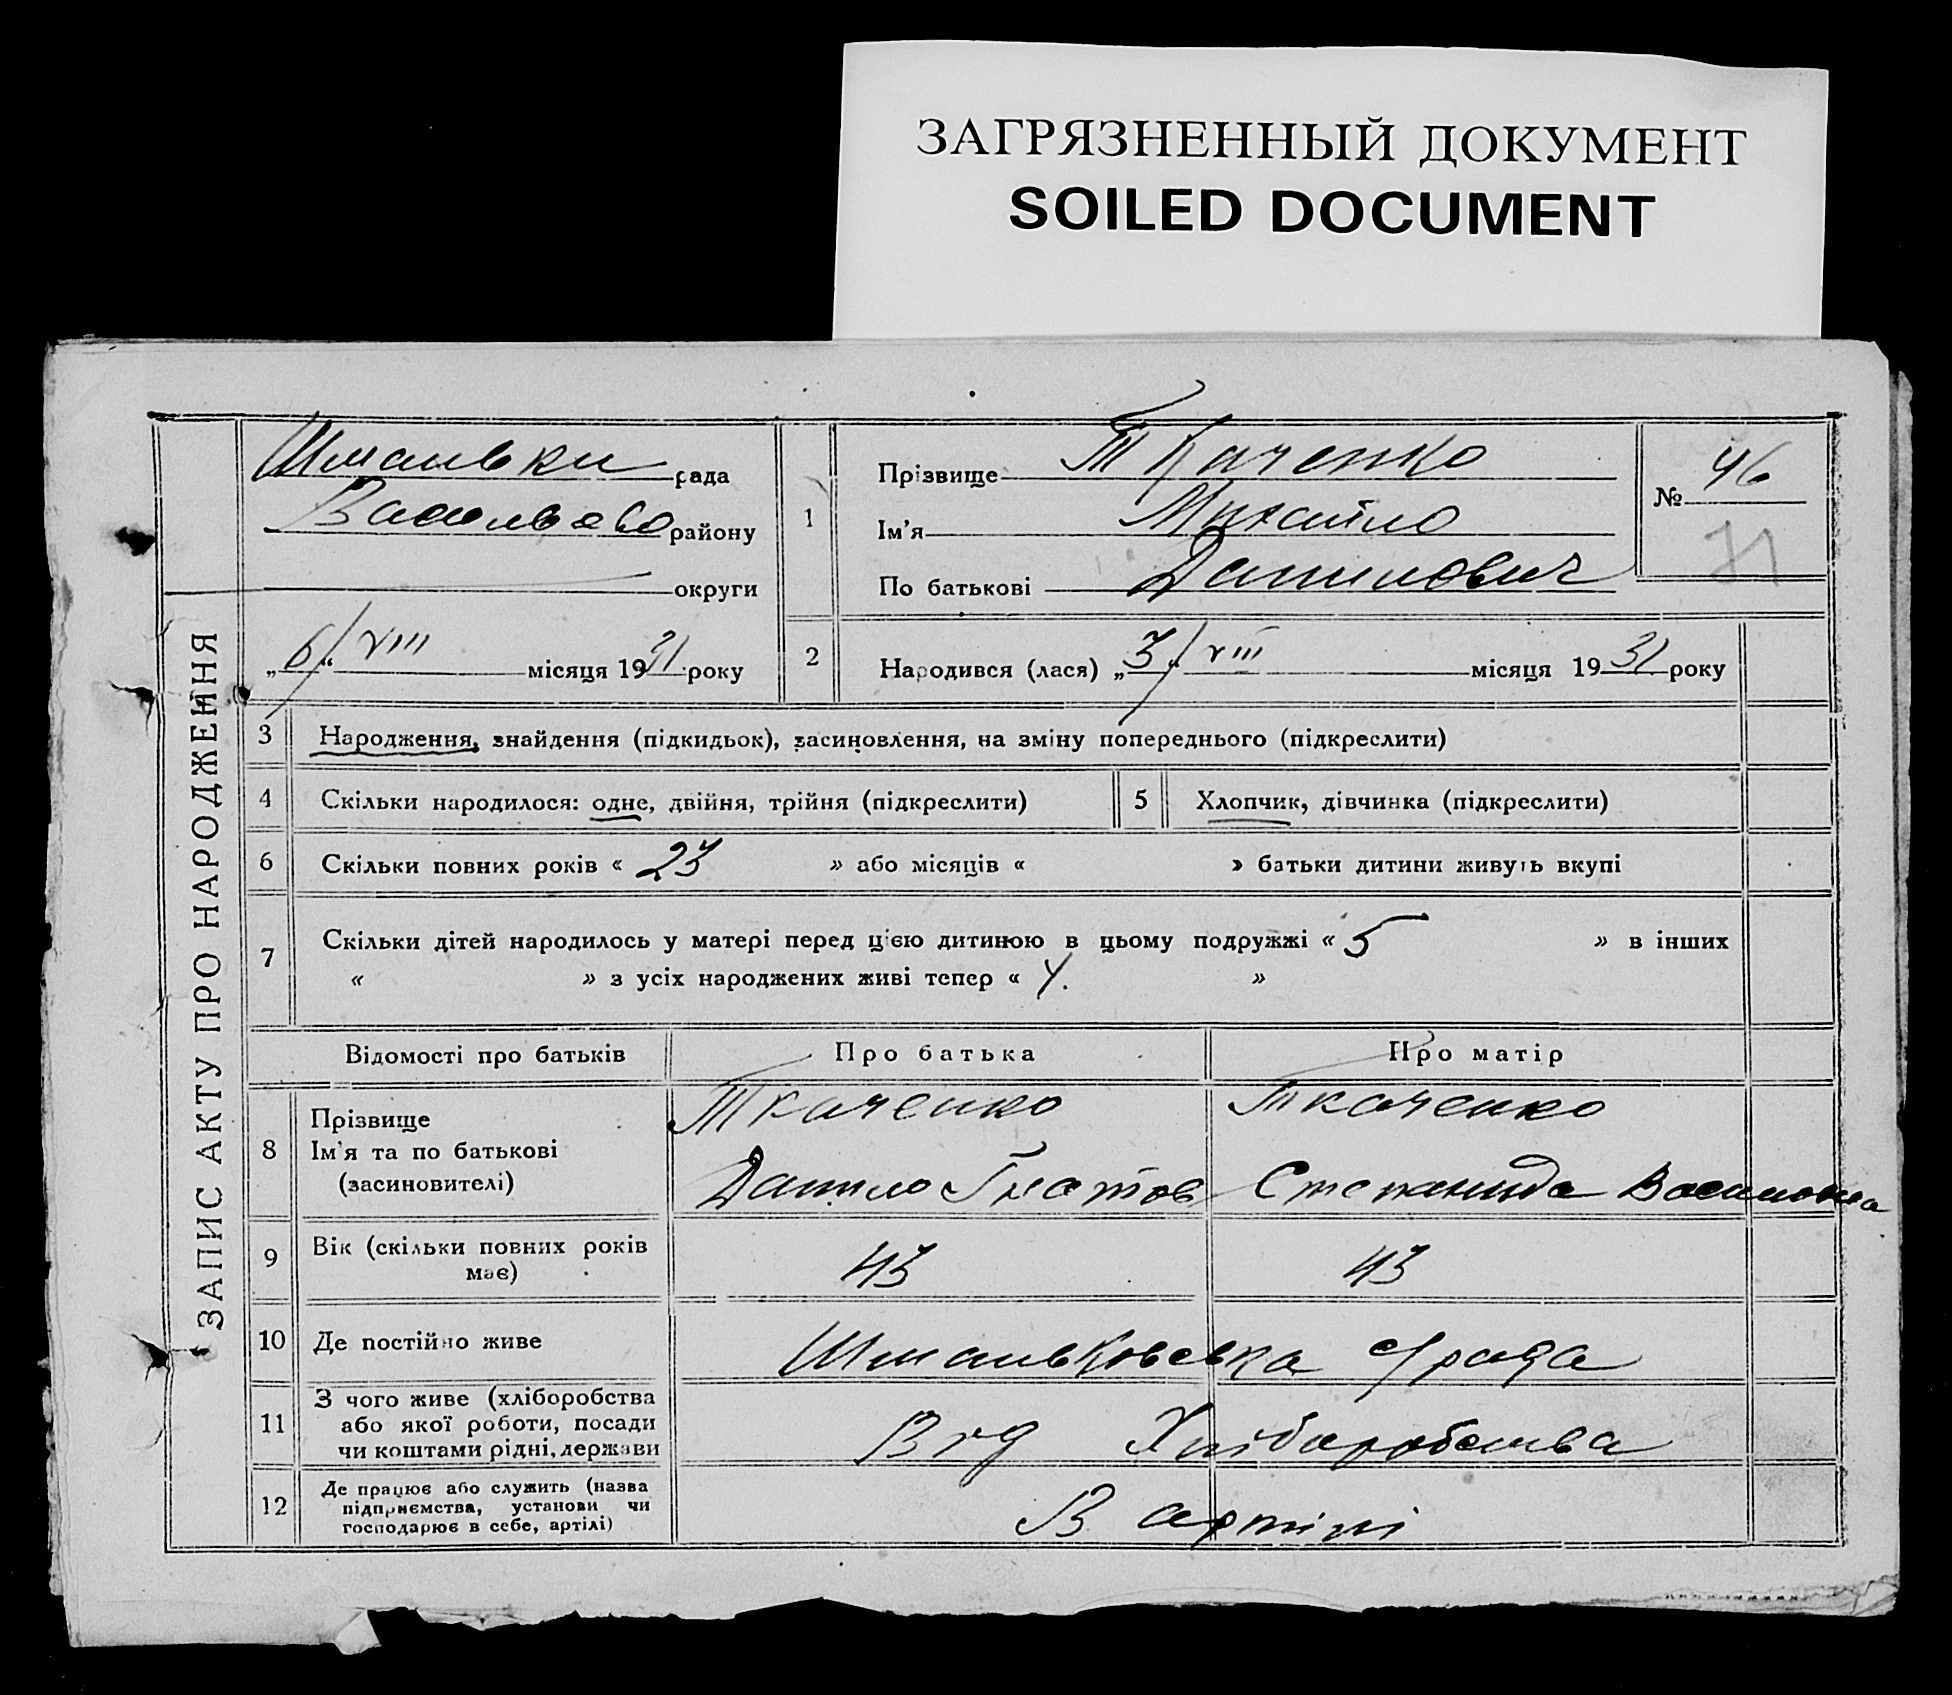 ЗАГРЯЗНЕННЫЙ ДОКУМЕНТ
SOILED DOCUMENT
ЗАПИС АКТУ ПРО НАРОДЖЕННЯ
рада
району
округи
„6“ VIII місяця 1931 року
1
Прізвище Ткаченко
Ім'я Михайло
По батькові Данилович
№ 46
71
2
Народився (лася) „3“ VIII місяця 1931 року
3 Народження, знайдення (підкидьок), засиновлення, на зміну попереднього (підкреслити)
4 Скільки народилося: одне, двійня, трійня (підкреслити)
5 Хлопчик, дівчинка (підкреслити)
6 Скільки повних років « 23 » або місяців « » батьки дитини живуть вкупі
7 Скільки дітей народилось у матері перед цією дитиною в цьому подружжі « 5 » в інших
« » з усіх народжених живі тепер « 4. »
Відомості про батьків Про батька Про матір
8 Прізвище
Ім'я та по батькові
(засиновителі)
Ткаченко
Данило Гнатов
Ткаченко
Степанида Василовна
9 Вік (скільки повних років
має)
43 43
10 Де постійно живе
Шманьковська с/рада
11 З чого живе (хліборобства
або якої роботи, посади
чи коштами рідні, держави
Від Хліборобства
12 Де працює або служить (назва
підприємства, установи чи
господарює в себе, артілі)
В артілі